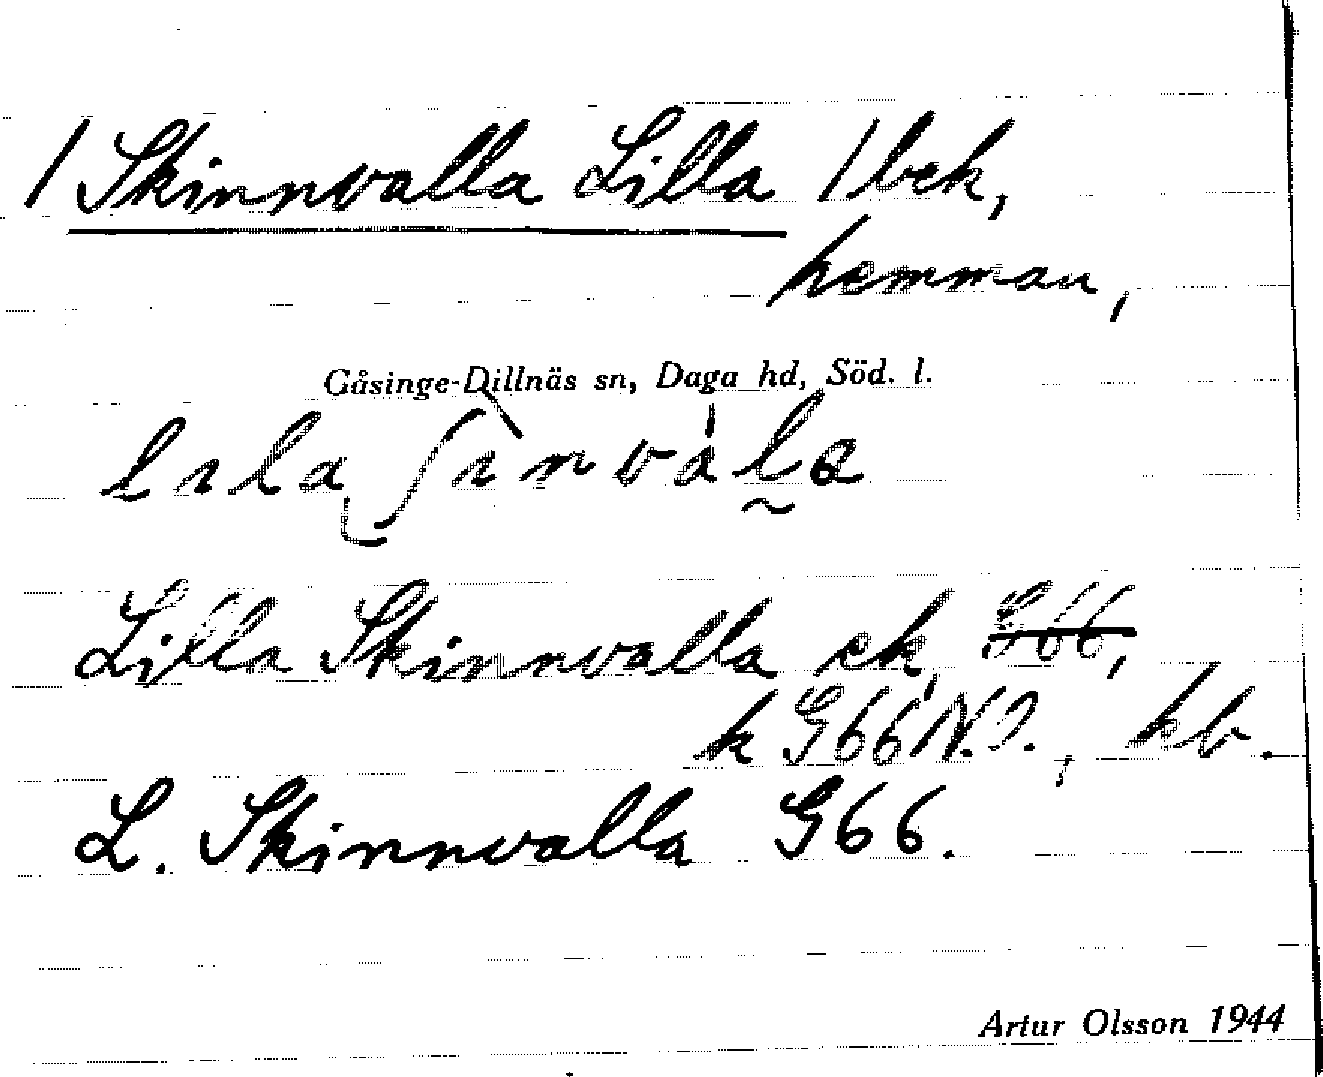 / Skinnvalla Lilla / bek,
hemman,
Gåsinge-Dillnäs sn, Daga hd, Söd. l.
Lilla Skinnvalla ek, G66,
k G66 N.J., kb.
L. Skinnvalla G66.
Artur Olsson 1944